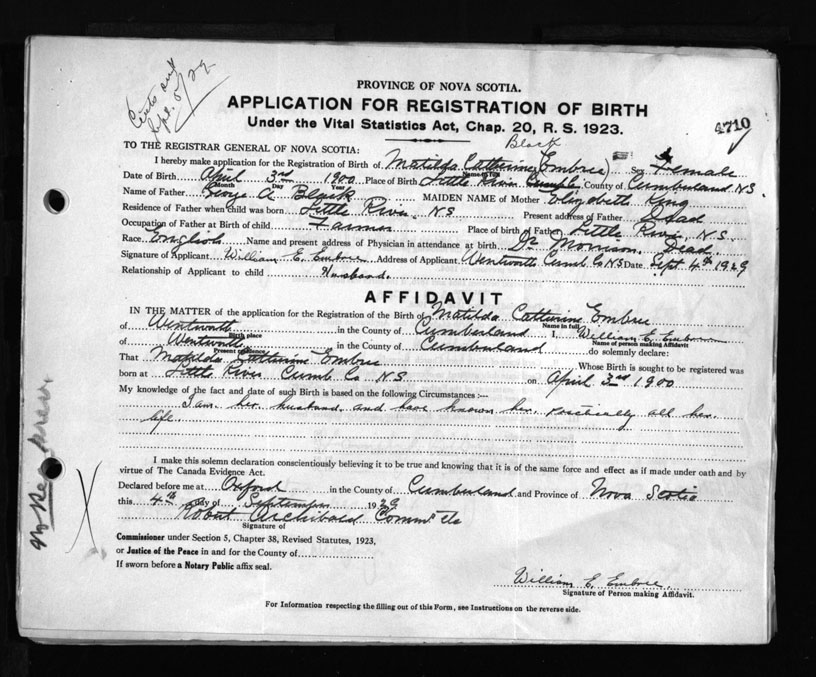 Certs sent
Sept. 5/29
PROVINCE OF NOVA SCOTIA.
APPLICATION FOR REGISTRATION OF BIRTH
Under the Vital Statistics Act, Chap. 20, R. S. 1923.
4710
Black
TO THE REGISTRAR GENERAL OF NOVA SCOTIA:
I hereby make application for the Registration of Birth of Matilda Catherine Embree Sex Female
Name in full
Date of Birth April 3rd 1900 Place of Birth Little River County of Cumberland NS
Month Day Year
Name of Father George A Black MAIDEN NAME of Mother Elizabeth King
Residence of Father when child was born Little River NS Present address of Father Dead
Occupation of Father at Birth of child Farmer Place of birth of Father Little River N.S.
Race English Name and present address of Physician in attendance at birth Dr Morrison, Dead
Signature of Applicant William E. Embree Address of Applicant Wentworth Cumb Co NS Date Sept 4th 1929
Relationship of Applicant to child Husband.
AFFIDAVIT
IN THE MATTER of the application for the Registration of the Birth of Matilda Catherine Embree
Name in full
of Wentworth in the County of Cumberland I, William E. Embree
Birth place Name of person making Affidavit
of Wentworth in the County of Cumberland do solemnly declare:
Present residence
That Matilda Catherine Embree Whose Birth is sought to be registered was
born at Little River Cumb Co NS on April 3rd 1900
My knowledge of the fact and date of such Birth is based on the following Circumstances :—
I am her husband and have known her practically all her
life.
I make this solemn declaration conscientiously believing it to be true and knowing that it is of the same force and effect as if made under oath and by
virtue of The Canada Evidence Act.
Declared before me at Oxford in the County of Cumberland and Province of Nova Scotia
this 4th day of September 1929
Archibald
Signature of
Commissioner under Section 5, Chapter 38, Revised Statutes, 1923,
or Justice of the Peace in and for the County of
If sworn before a Notary Public affix seal.
William E. Embree
Signature of Person making Affidavit.
For Information respecting the filling out of this Form, see Instructions on the reverse side.